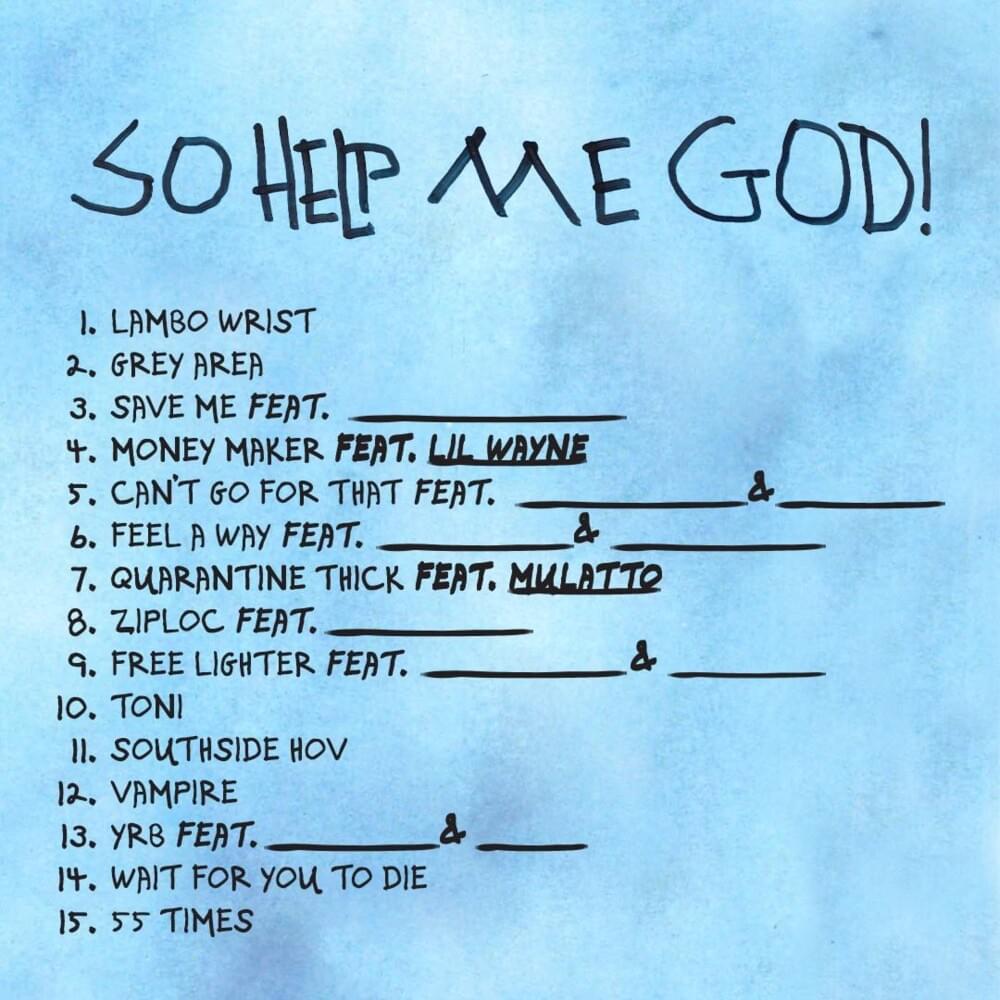 SO HELP ME GOD!
1. LAMBO WRIST
2. GREY AREA
3. SAVE ME FEAT. __________
4. MONEY MAKER FEAT. LIL WAYNE
5. CAN'T GO FOR THAT FEAT. __________ & __________
6. FEEL A WAY FEAT. __________ & __________
7. QUARANTINE THICK FEAT. MULATTO
8. ZIPLOC FEAT. __________
9. FREE LIGHTER FEAT. __________ & __________
10. TONI
11. SOUTHSIDE HOV
12. VAMPIRE
13. YRB FEAT. __________ & __________
14. WAIT FOR YOU TO DIE
15. 55 TIMES